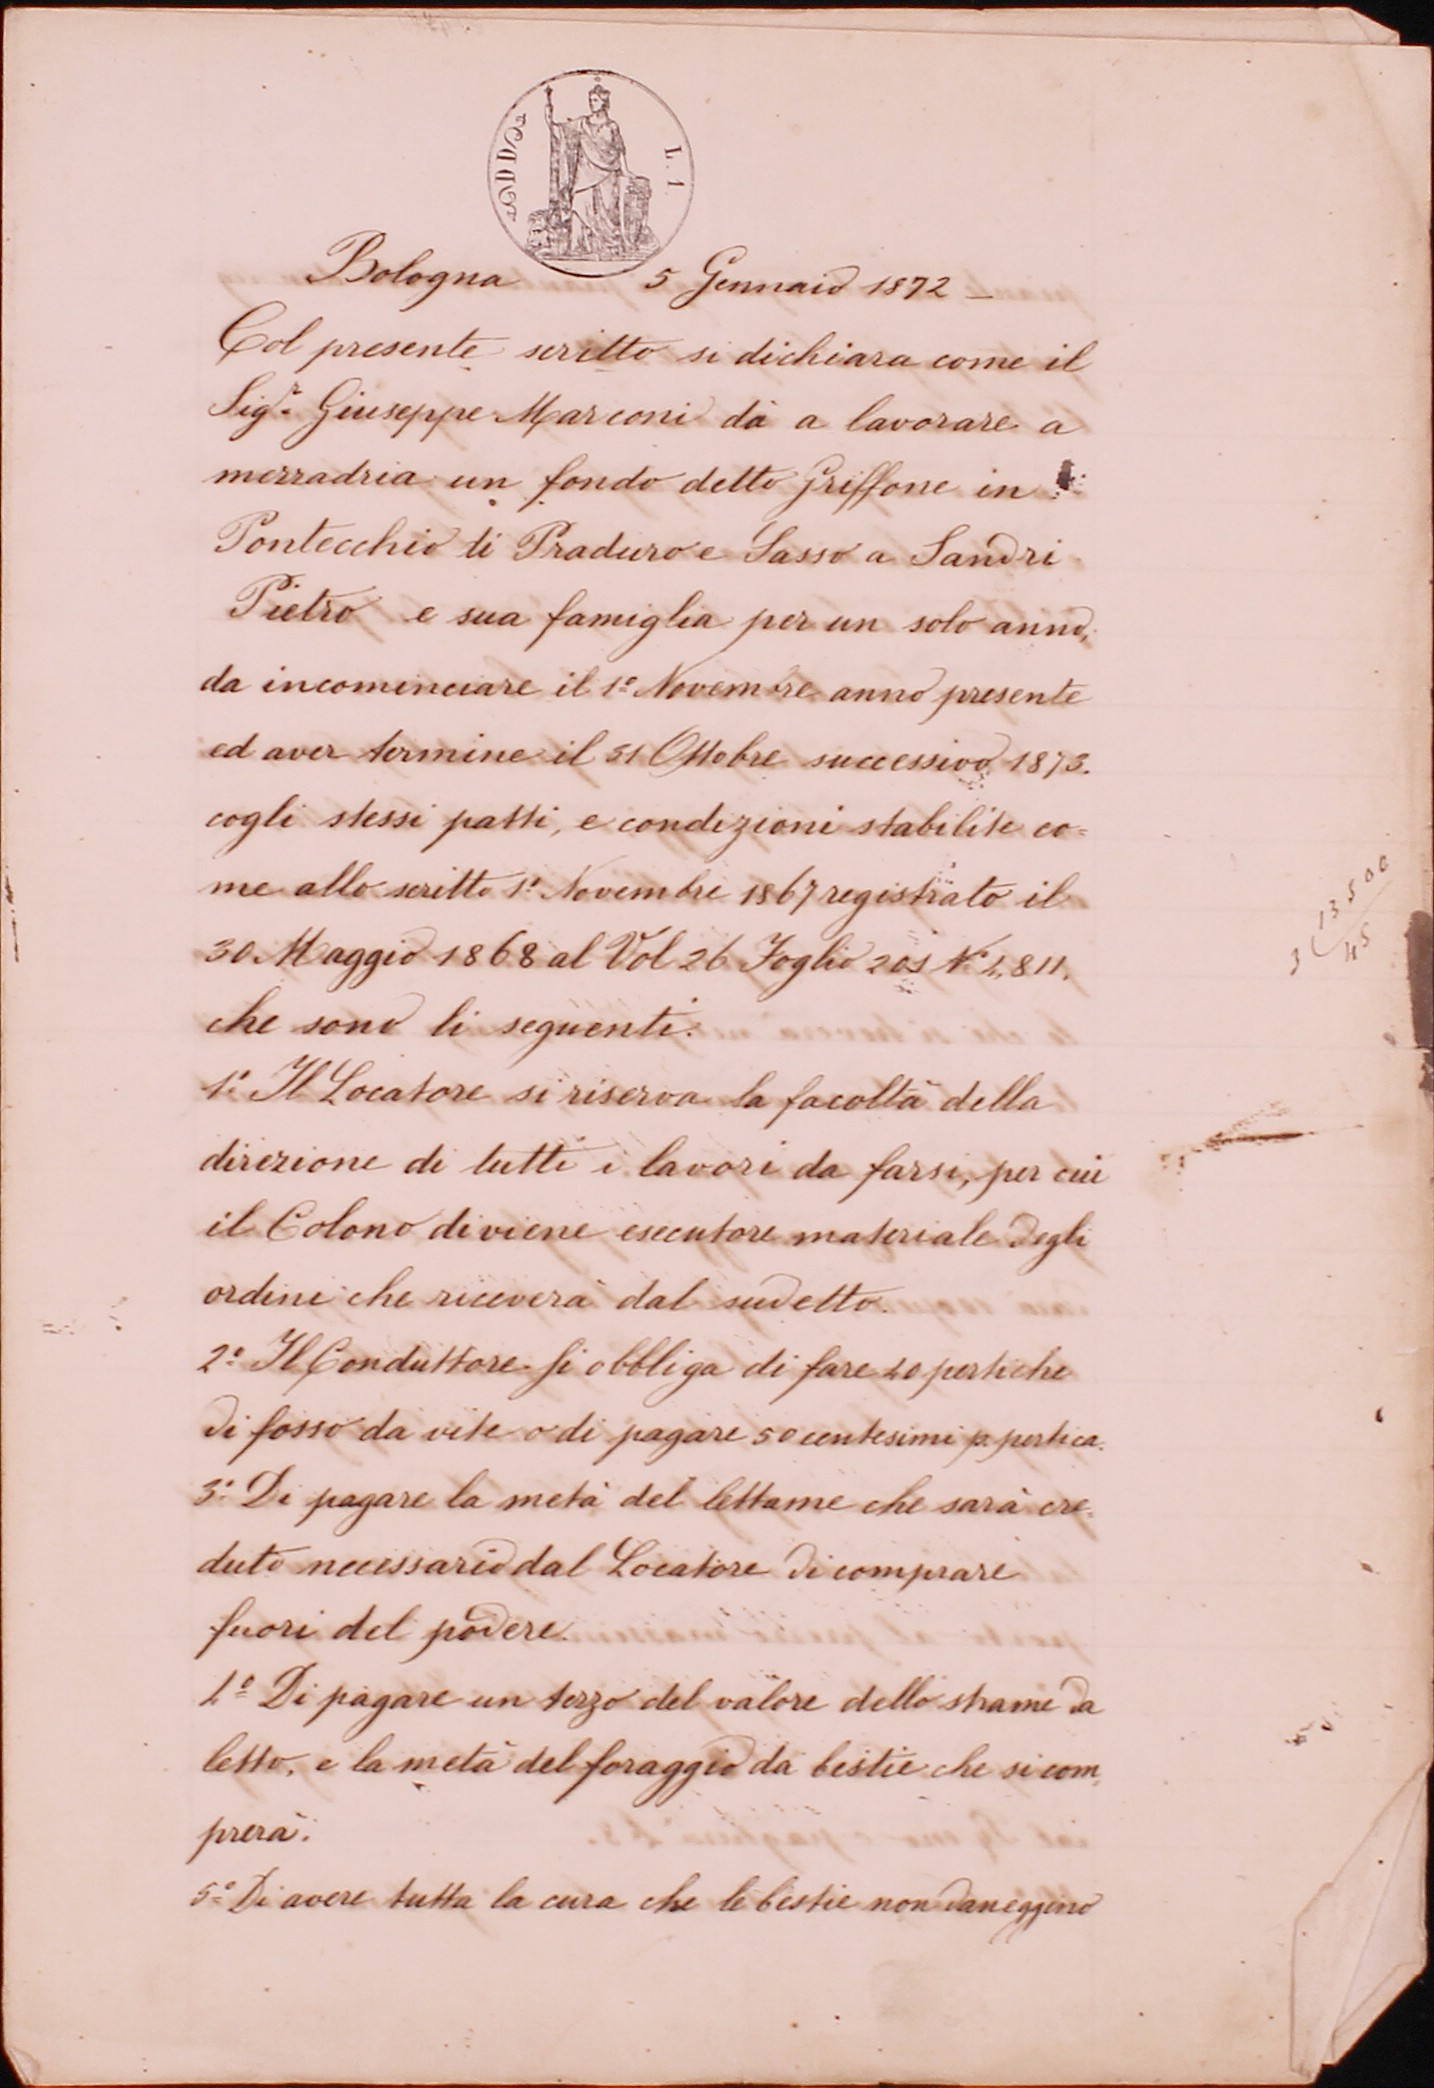 L. 1.
Bologna 5 Gennaio 1872 _
Col presente scritto si dichiara come il
Sigr. Giuseppe Marconi dà a lavorare a
mezzadria un fondo detto Griffone in
Pontecchio di Praduro e Sasso a Sandri
Pietro e sua famiglia per un solo anno,
da incominciare il 1º Novembre anno presente
ed aver termine il 31 Ottobre successivo 1873.
cogli stessi patti, e condizioni stabilite co=
me allo scritto 1º Novembre 1867 registrato il
30 Maggio 1868 al Vol 26 Foglio 201 Nº
che sono li seguenti.
1º Il Locatore si riserva la facoltà della
direzione di tutti i lavori da farsi, per cui
il Colono diviene esecutore materiale degli
ordini che riceverà dal sudetto.
2º Il Conduttore si obbliga di fare 20 pertiche
di fosso da vite o di pagare 50 centesimi p. pertica.
3º Di pagare la metà del lettame che sarà cre=
duto necessario dal Locatore di comprare
fuori del podere.
4º Di pagare un terzo del valore dello strame da
letto, e la metà del foraggio da bestie che si com=
prerà.
5º Di avere tutta la cura che le bestie non daneggino
13500
3
45